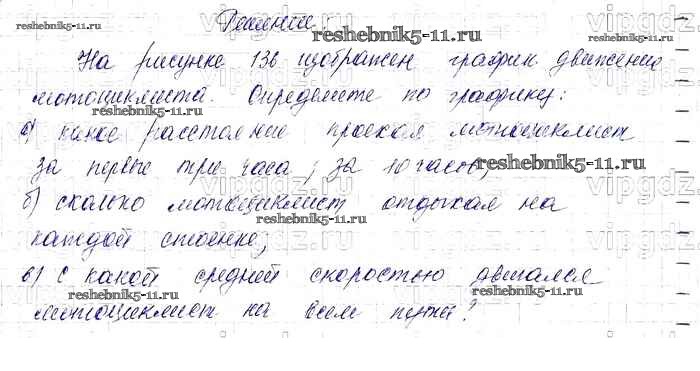 Решение
reshebnik5-11.ru
reshebnik5-11.ru
На рисунке 136 изображен график движения
мотоциклиста. Определите по графику:
reshebnik5-11.ru
а) какое расстояние проехал мотоциклист
за первые три часа; за 10 часов;
reshebnik5-11.ru
б) сколько мотоциклист отдыхал на
reshebnik5-11.ru
каждой стоянке;
в) с какой средней скоростью двигался
reshebnik5-11.ru
reshebnik5-11.ru
мотоциклист на всем пути?
vipgdz.ru